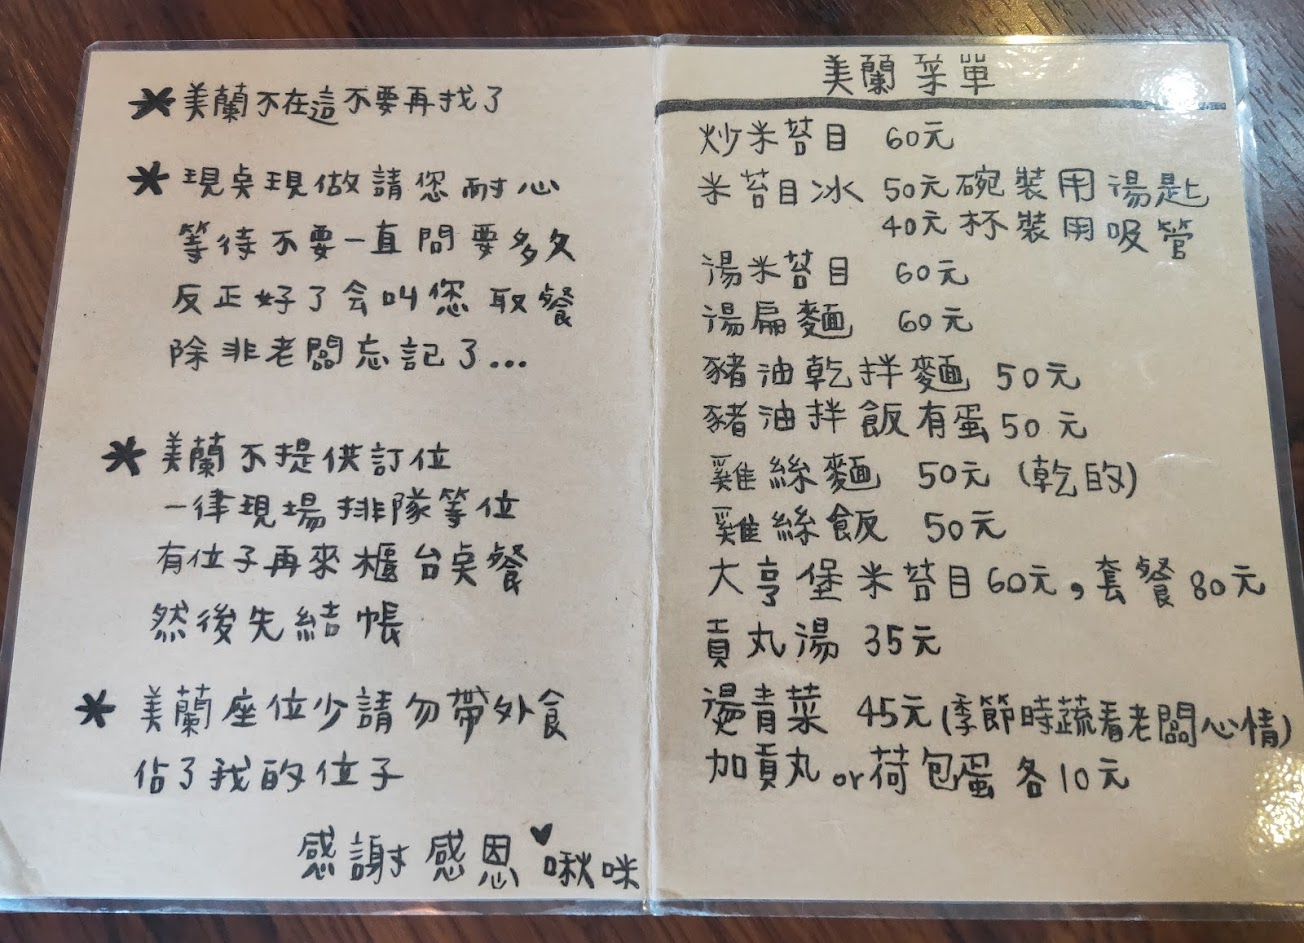 美蘭不在這不要再找了
現桌現做請您耐心
等待不要一直問要多久
反正好了会叫您取餐
除非老闆忘記了...
美蘭不提供訂位
一律現場排隊等位
有位子再來櫃台桌餐
然後先結帳
美蘭座位少請勿帶外食
佔了我的位子
感謝感恩♥啾咪
美蘭菜單
炒米苔目 60元
米苔目冰 50元碗裝用湯匙
40元杯裝用吸管
湯米苔目 60元
湯扁麵 60元
豬油乾拌麵 50元
豬油拌飯有蛋50元
雞絲麵 50元(乾的)
雞絲飯 50元
大亨堡米苔目60元,套餐80元
貢丸湯 35元
燙青菜 45元(季節時蔬看老闆心情)
加貢丸or荷包蛋各10元